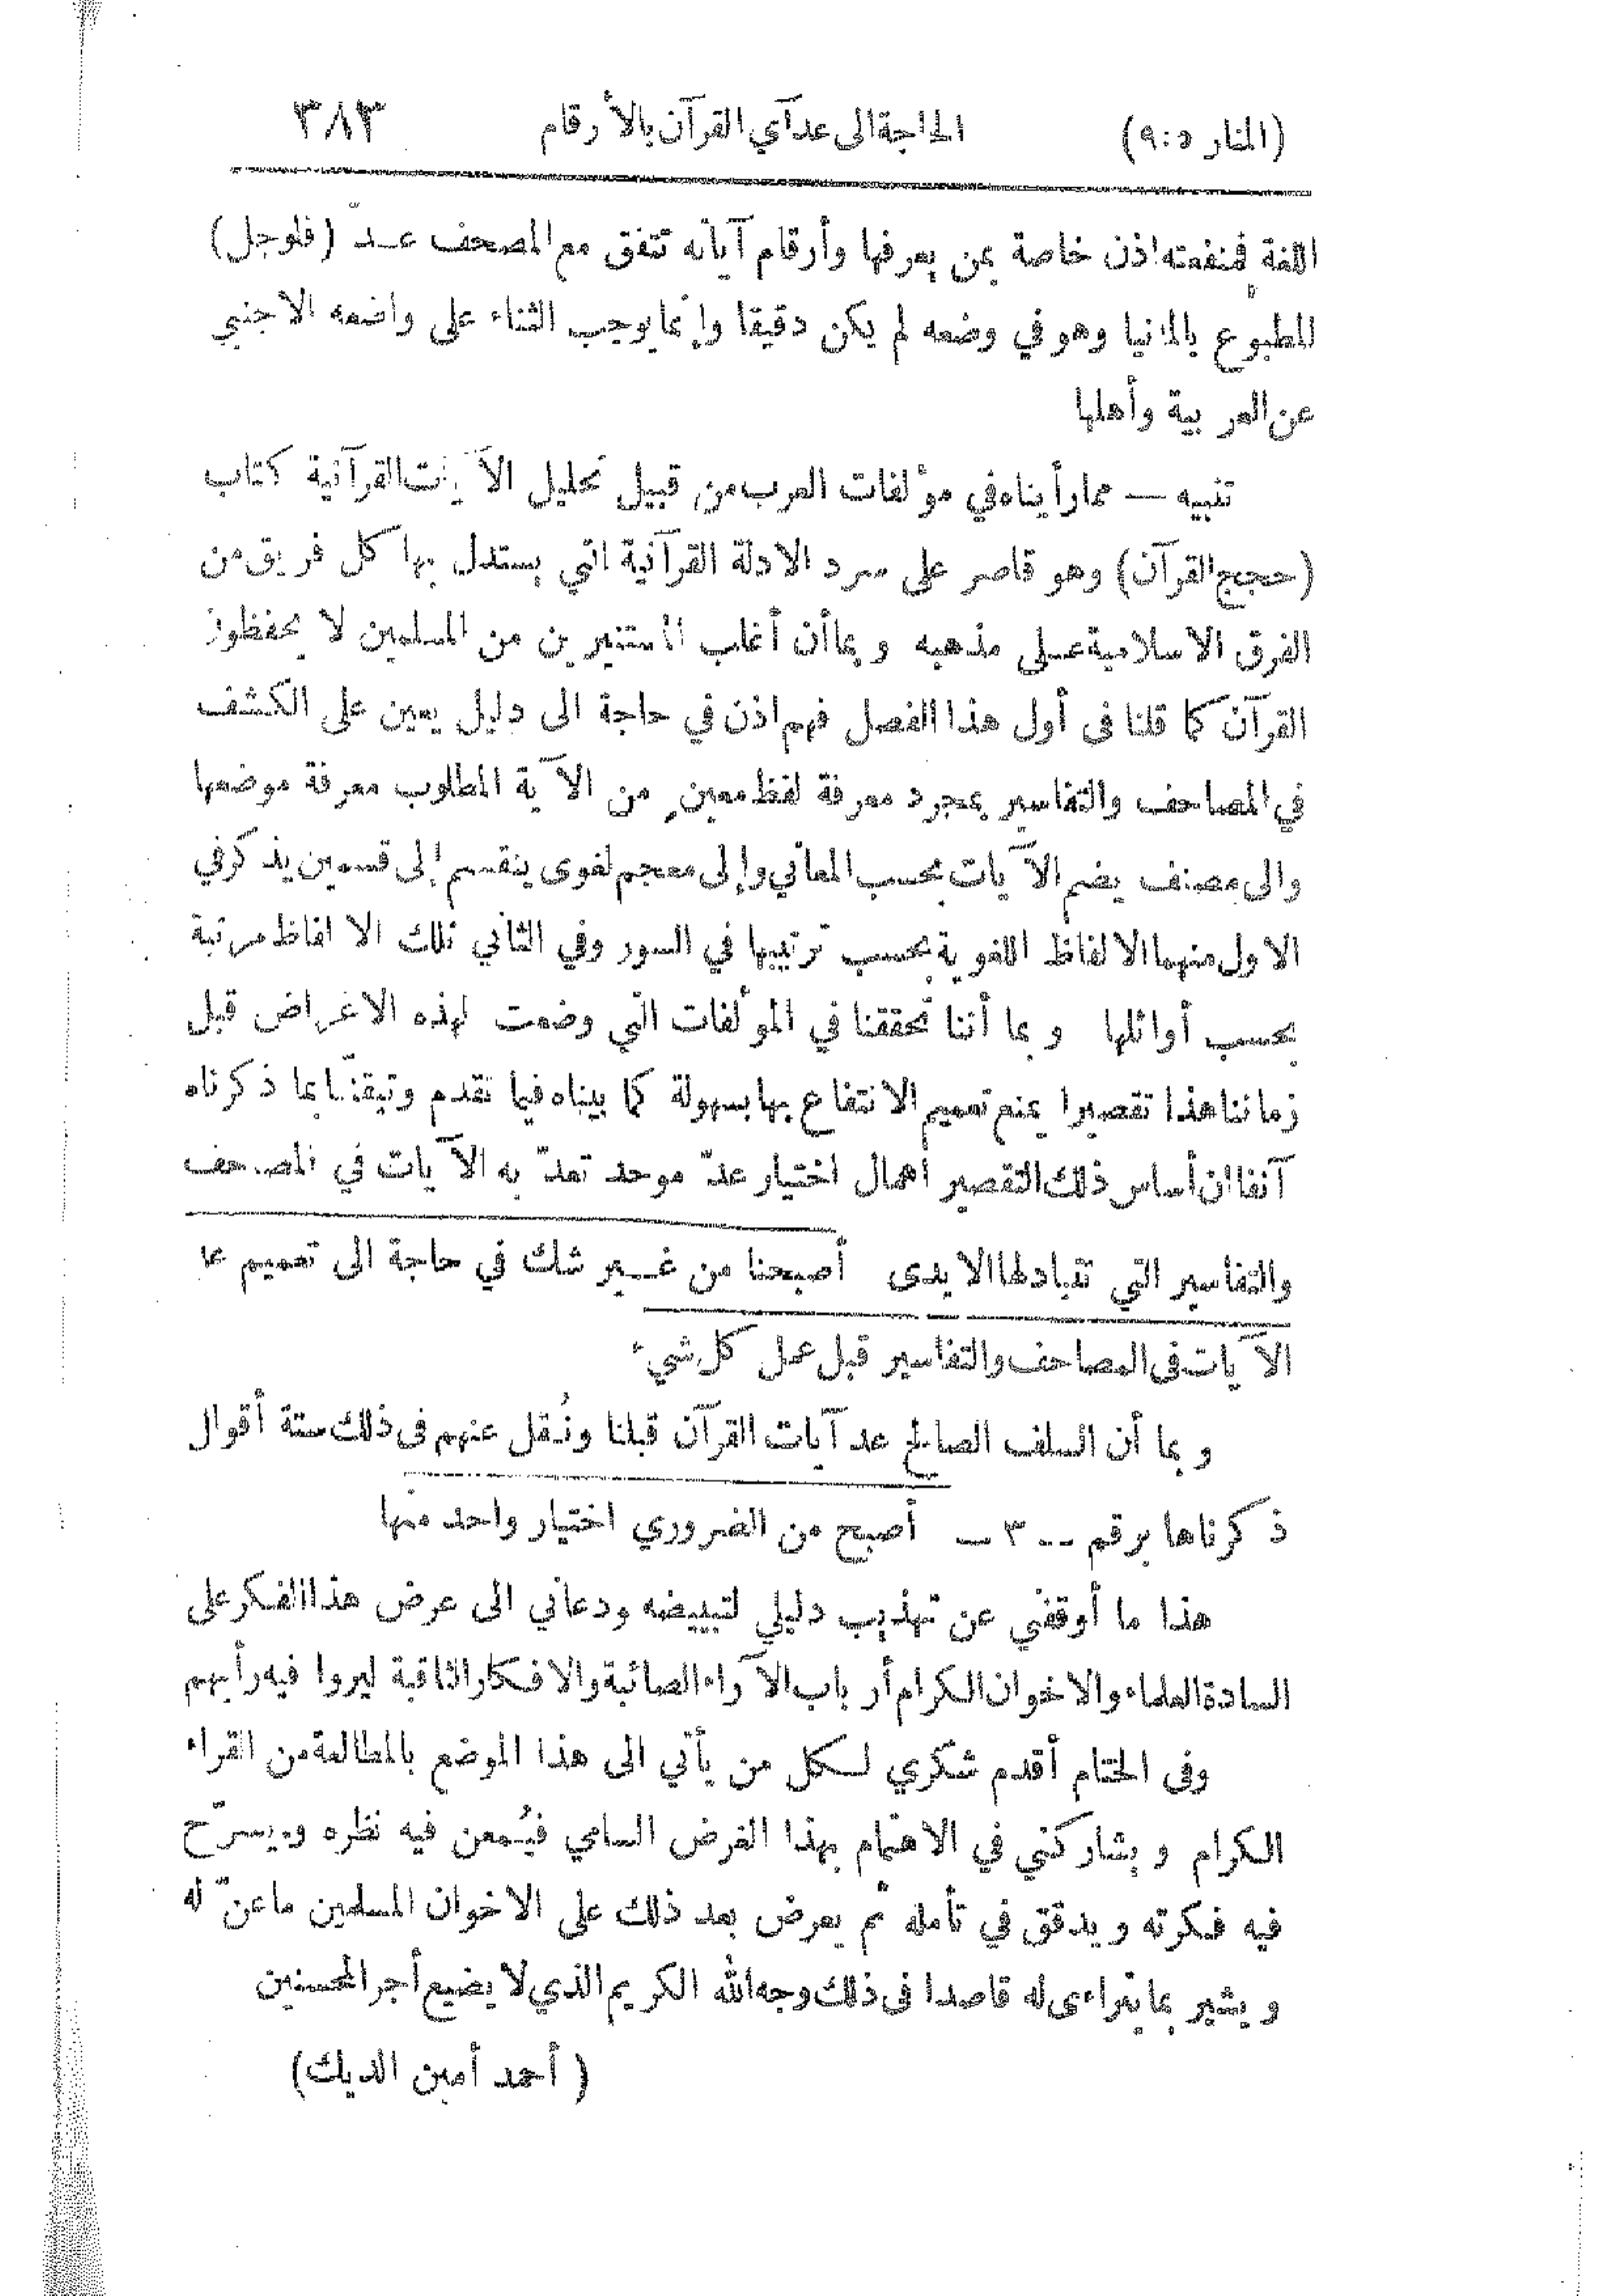 (المنار ٥:٩) الحاجة الى عد آي القرآن بالأرقام ٣٨٣
اللغة فمنفعته اذن خاصة بمن يعرفها وأرقام آياته تتفق مع المصحف عــدّ (فلوجل)
المطبوع بالمانيا وهو في وضعه لم يكن دقيقا وإنما يوجب الثناء على واضعه الاجنبي
عن العربية وأهلها
تنبيه — مما رأيناه في مؤلفات العرب من قبيل تحليل الآيات القرآنية كتاب
(حجج القرآن) وهو قاصر على سرد الادلة القرآنية التي يستدل بها كل فريق من
الفرق الاسلامية عــلى مذهبه وبما أن أغلب المستنيرين من المسلمين لا يحفظون
القرآن كما قلنا فى أول هذا الفصل فهم اذن في حاجة الى دليل يعين على الكشف
في المصاحف والتفاسير بمجرد معرفة لفظ معين من الآية المطلوب معرفة موضعها
والى مصنف يضم الآيات بحسب المعاني وإلى معجم لغوى ينقسم إلى قسمين يذكر في
الاول منهما الالفاظ اللغوية بحسب ترتيبها في السور وفي الثاني تلك الالفاظ مرتبة
بحسب أوائلها وبما أننا تحققنا في المؤلفات التي وضعت لهذه الاغراض قبل
زماننا هذا تقصيرا يمنع تعميم الانتفاع بها بسهولة كما بيناه فيما تقدم وتيقنّا بما ذكرناه
آنفا ان أساس ذلك التقصير أهمال اختيار عدّ موحد تعدّ به الآيات في المصاحف
والتفاسير التي تتبادلها الايدى أصبحنا من غــير شك في حاجة الى تعميم عد
الآيات فى المصاحف والتفاسير قبل عمل كل شيء
وبما أن السلف الصالح عد آيات القرآن قبلنا ونُقل عنهم فى ذلك ستة أقوال
ذكرناها برقم -- ٣ — أصبح من الضروري اختيار واحد منها
هذا ما أوقفني عن تهذيب دليلي لتبييضه ودعاني الى عرض هذا الفكر على
السادة العلماء والاخوان الكرام أرباب الآراء الصائبة والافكار الثاقبة ليروا فيه رأيهم
وفى الختام أقدم شكري لــكل من يأتي الى هذا الموضع بالمطالعة من القراء
الكرام ويشاركني في الاهتمام بهذا الغرض السامي فيُــمعن فيه نظره ويسرّح
فيه فكرته ويدقق في تأمله ثم يعرض بعد ذلك على الاخوان المسلمين ما عنّ له
ويشير بما يتراءى له قاصدا فى ذلك وجه الله الكريم الذي لا يضيع أجر المحسنين
(أحمد أمين الديك)